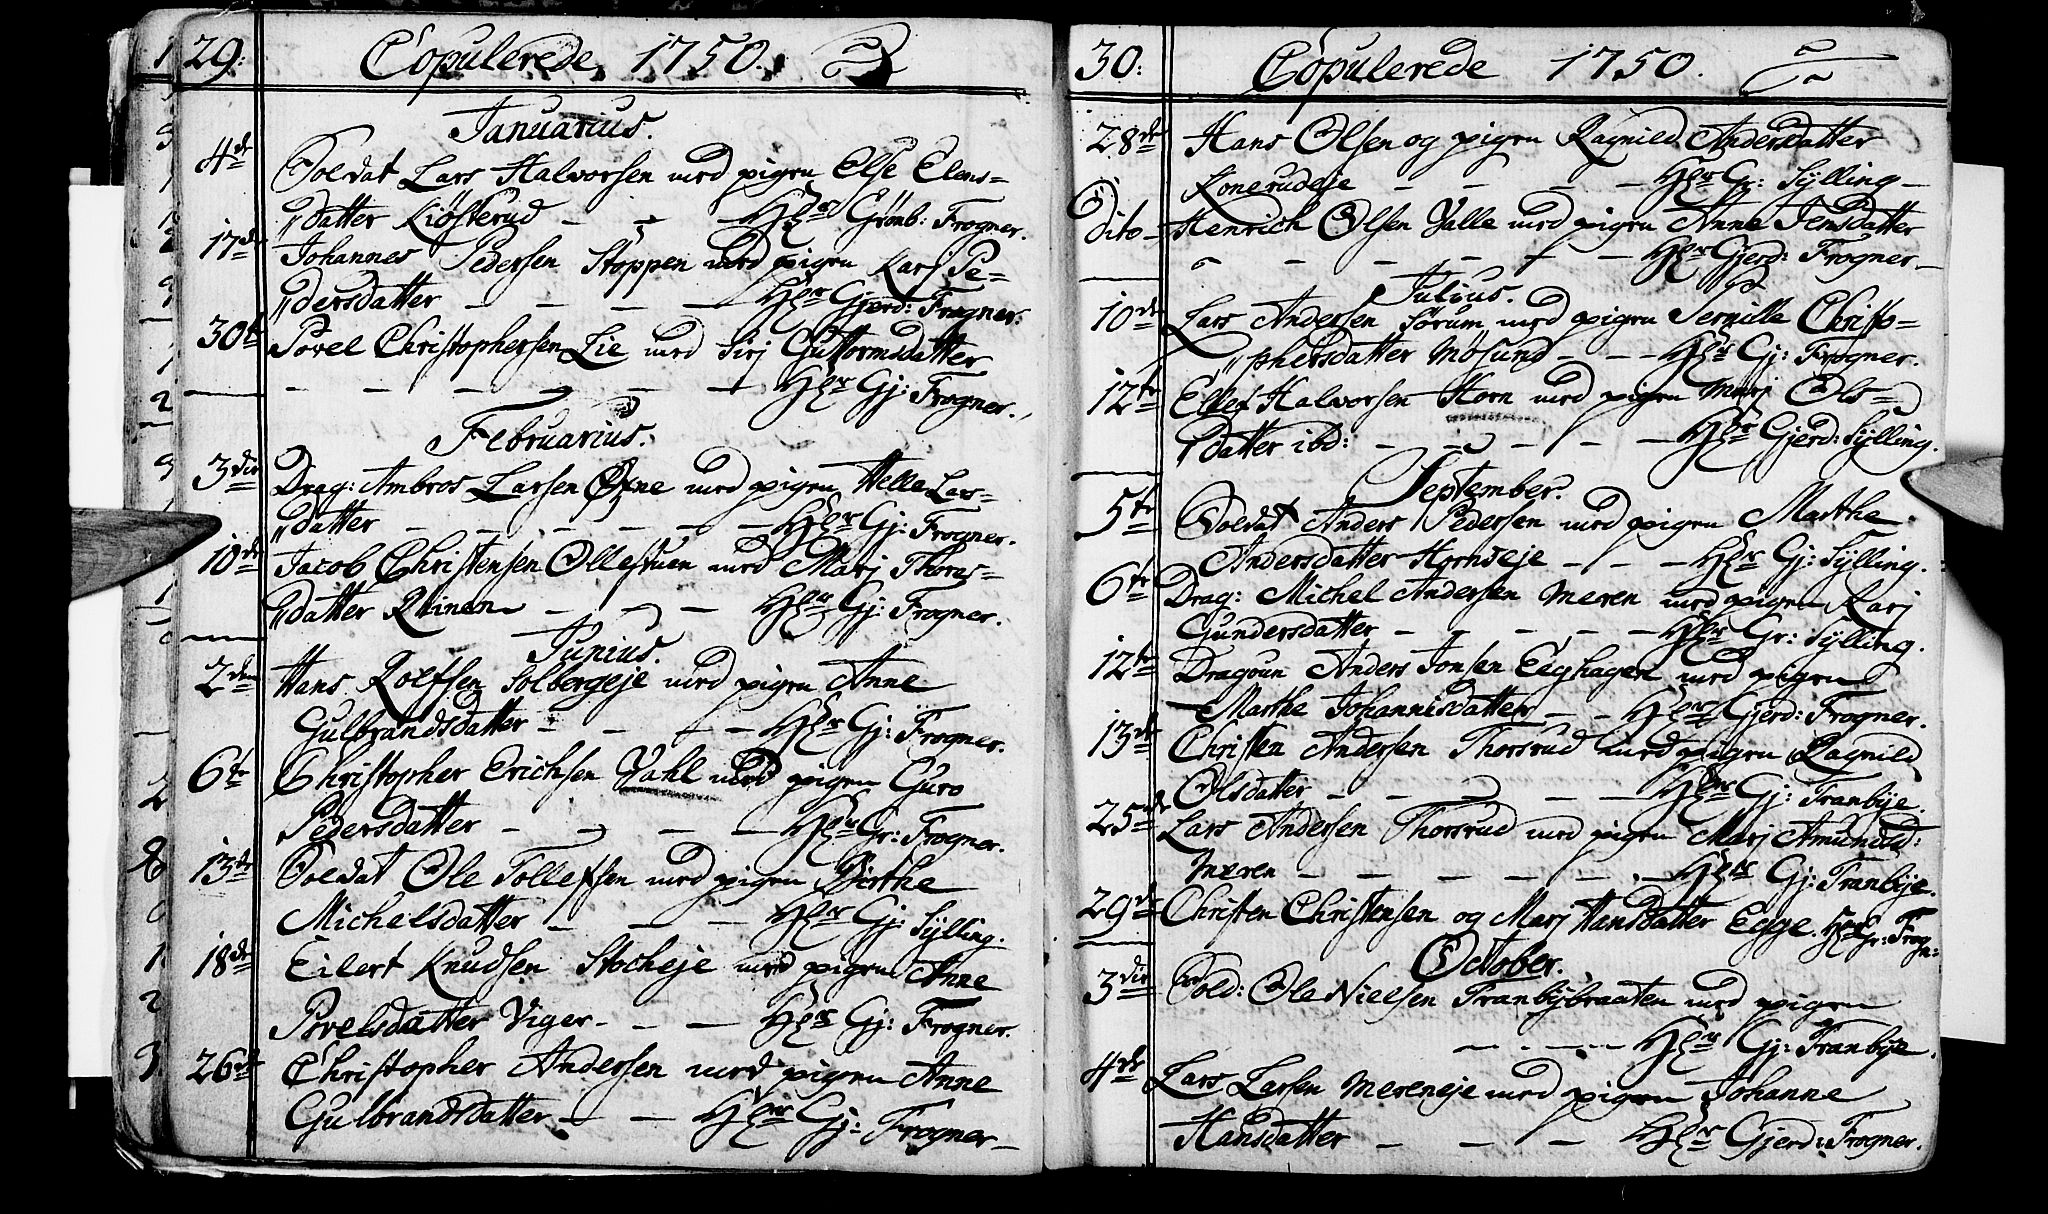 29: Copulerede 1750.
Januarius.
4de Soldat Lars Halvorsen med pigen Else Elens=
datter Kiøsterud – – – Hr Grønb: Frogner.
17de Johannes Pedersen Stoppen med pigen Karj Pe=
dersdatter – – – – Hr Gjerd: Frogner.
30te Povel Christophersen Lie med Sirj Guttormsdatter
– – – – – – Hr Gj: Frogner.
Februarius.
3die Drag: Ambros Larsen med pigen Helle Lars=
datter – – – – – – Hr Gj: Frogner.
10de Jacob Christensen Ollestuen med Marj Thores=
datter – – – Hr Gj: Frogner.
Junius.
2den Hans Rolfsen Solbergeje med pigen Anne
Gulbrandsdatter – – – – Hr Gj: Frogner.
6te Christopher Erichsen Vahl med pigen Guro
Pedersdatter – – – – Hr Gr: Frogner.
13de Soldat Ole Tollefsen med pigen Birthe
Michelsdatter – – – Hr Gj: Sÿlling.
18de Eilert Knudsen Stocheje med pigen Anne
Povelsdatter Viger – – – Hr Gj: Frogner.
26de Christopher Andersen med pigen Anne
Gulbrandsdatter – – – Hr Gj: Frogner –
30: Copulerede 1750.
28de Hans Olsen og pigen Ragnild Andersdatter
Konerudeje – – – – Hr Gr: Sÿlling –
Dito – Henrich Olsen Valle med pigen Anne Jensdatter
– – – – – – Hr Gjerd: Frogner –
Julius.
10de Lars Andersen Sørum med pigen Pernilla Christo=
phersdatter Møsund – – – Hr Gj: Frogner.
12te Ellef Halvorsen Horn med pigen Marj Ols=
datter ibd: – – – – – – Hr Gjerd: Sÿlling.
September.
5te Soldat Anders Pedersen med pigen Marthe
Andersdatter Horndeje – – – Hr Gj: Sÿlling.
6te Drag: Michel Andersen Meren med pigen Karj
Gundersdatter – – – – – Hr Gr: Sÿlling.
12te Dragoun Anders Jonsen Eeghagen med pigen
Marthe Johannisdatter – – Hr Gjerd: Frogner.
13de Christen Andersen Thorsrud med pigen Ragnild
Olsdatter – – – – – Hr Gj: Tranbÿe.
25de Lars Andersen Thorsrud med pigen Marj Amundsd:
Meren – – – – – – Hr Gj: Tranbÿe.
29de Christen Christensen og Marj Hansdatter Egge. Hr Gr: Frogn:
October.
3die Sold: Ole Nielsen Tranbÿbraaten med pigen
– – – – Hr Gj: Tranbÿe.
4de Lars Larsen Mereneje med pigen Johanne
Hansdatter – – – – Hr Gjerd: Frogner.